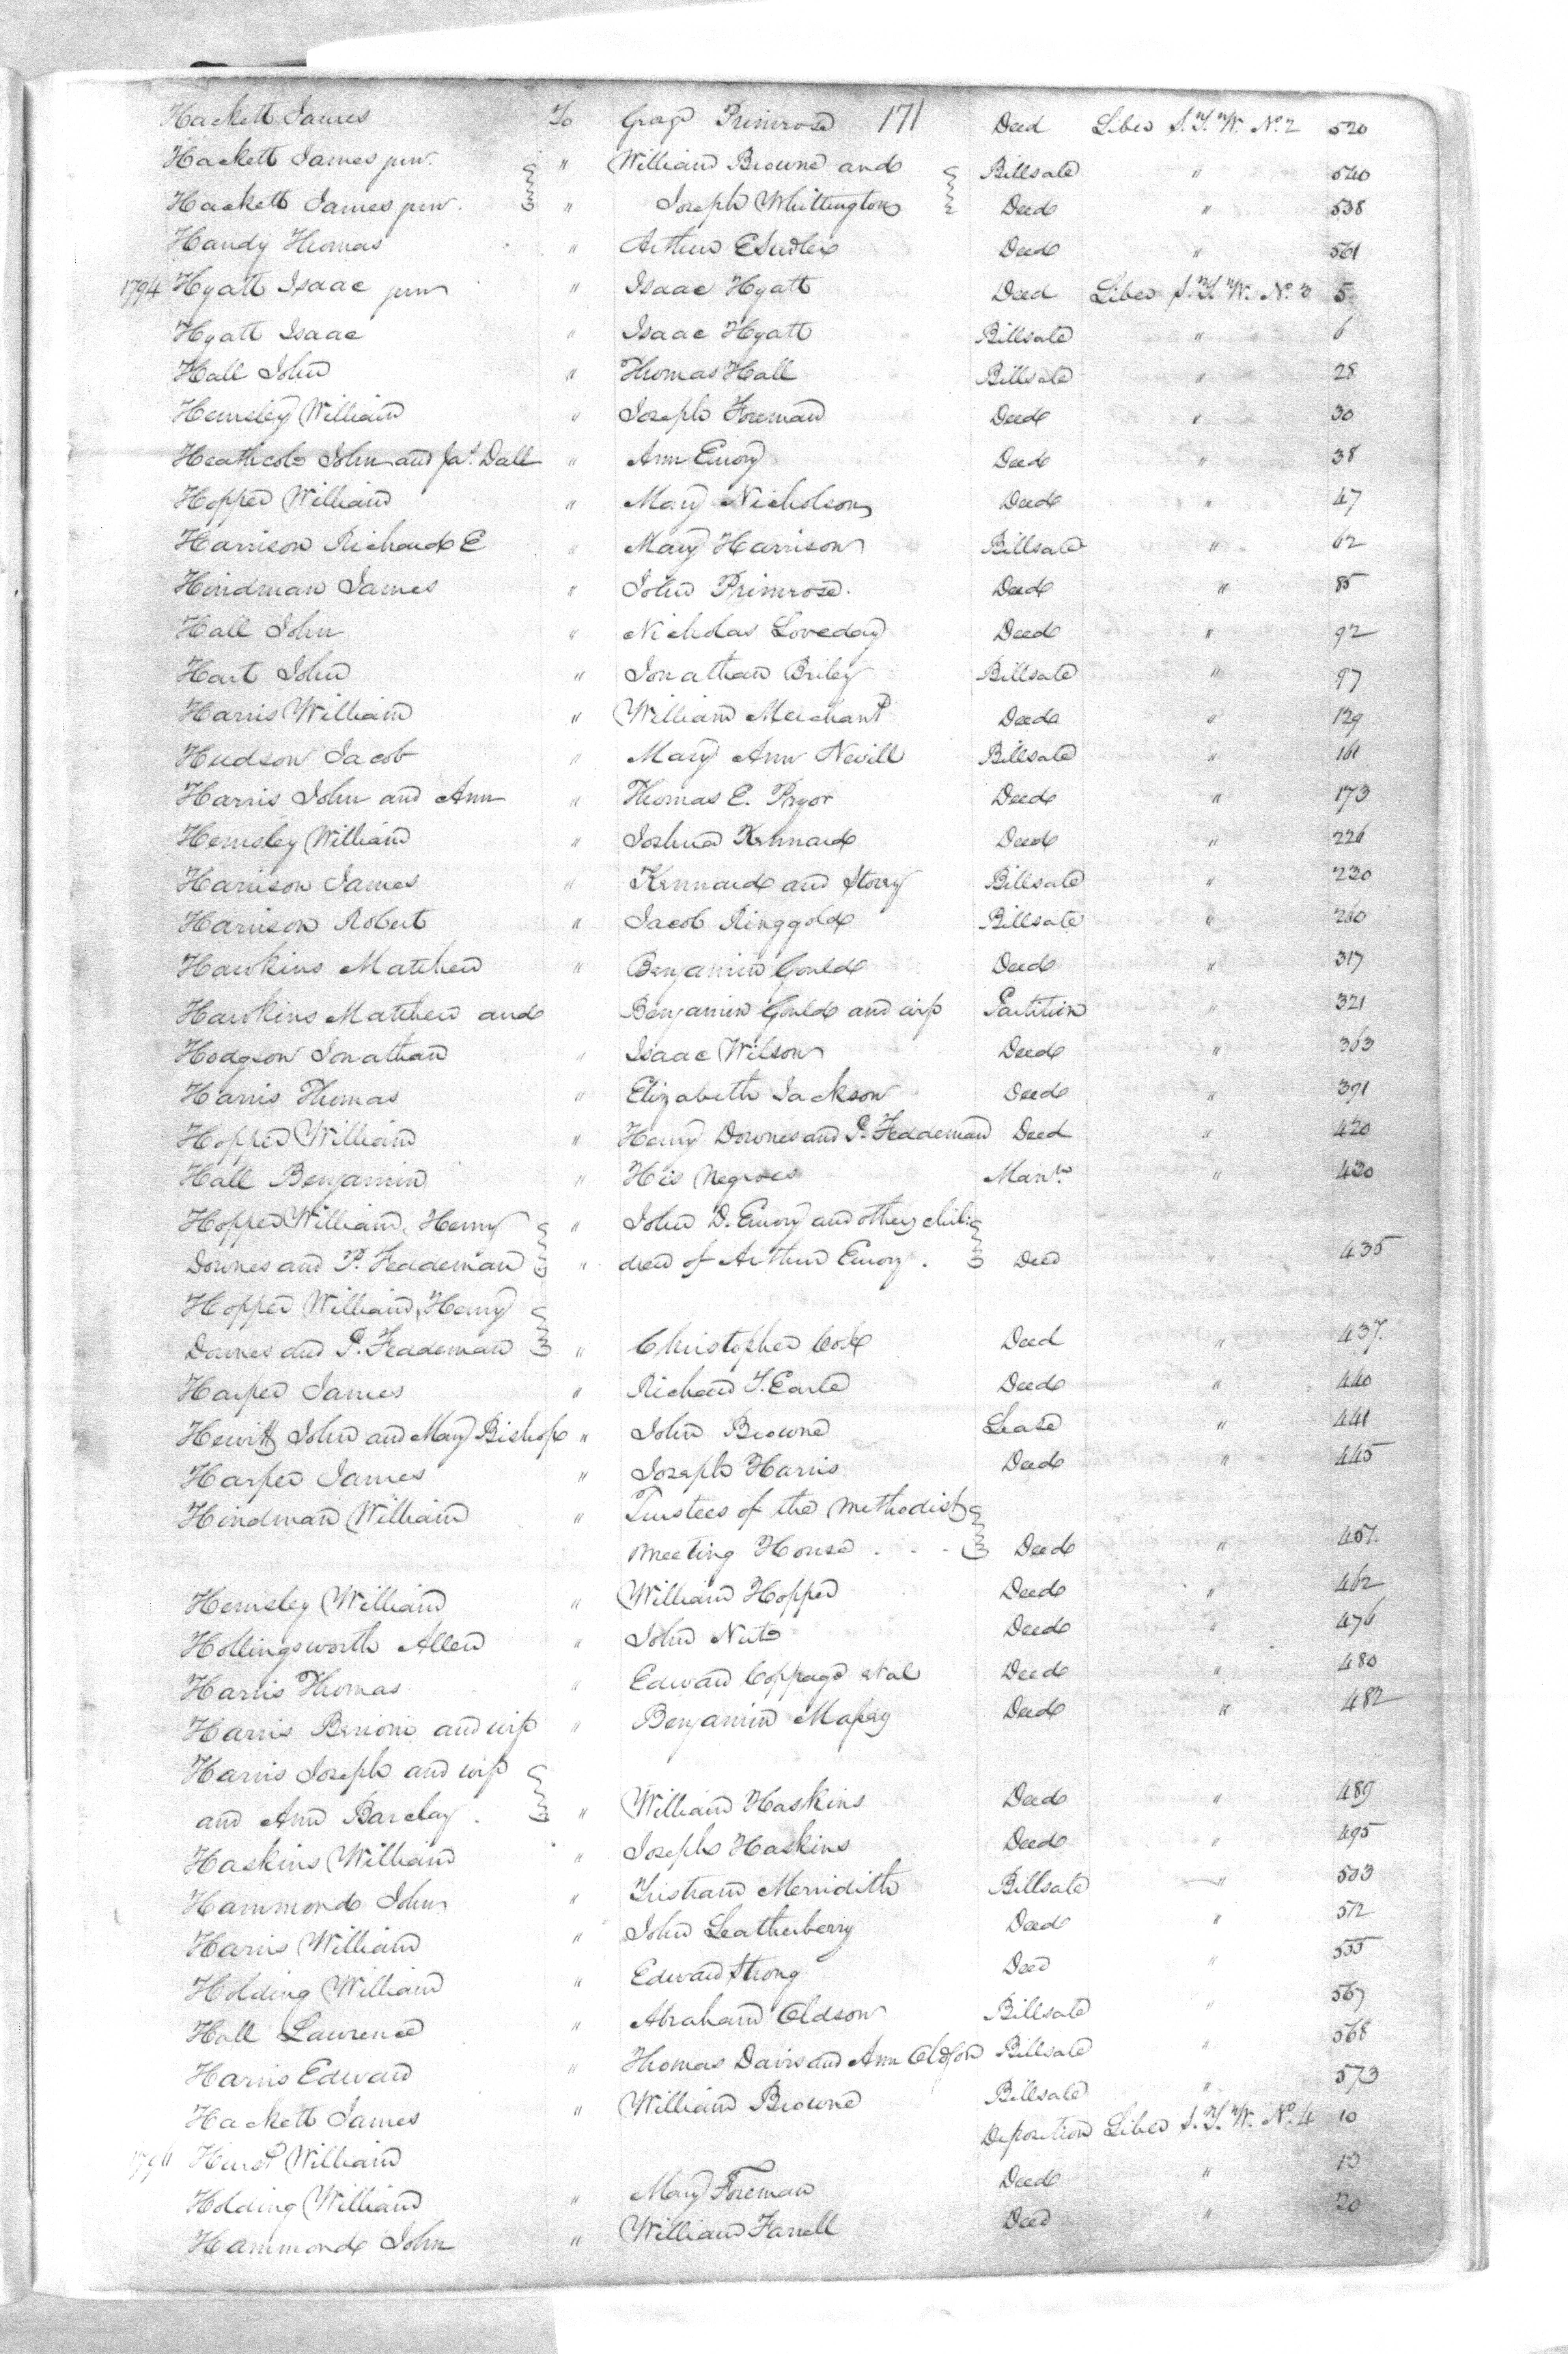 Hackett James To George Primrose 171 Deed Liber S.T.W. No. 2 520
Hackett James junr. " William Browne and Billsale " 540
Hackett James junr. " Joseph Whittington Deed " 538
Handy Thomas " Arthur E Sudler Deed " 561
1794 Hyatt Isaac junr " Isaac Hyatt Deed Liber S.T.W. No. 3 5
Hyatt Isaac " Isaac Hyatt Billsale " 6
Hall John " Thomas Hall Billsale " 28
Hemsley William " Joseph Foreman Deed " 30
Heathcote John and Jas. Dall " Ann Emory Deed " 38
Hopper William " Mary Nicholson Deed " 47
Harrison Richard E " Mary Harrison Billsale " 62
Hindman James " John Primrose Deed " 85
Hall John " Nicholas Loveday Deed " 92
Hart John " Jonathan Briley Billsale " 97
Harris William " William Merchant Deed " 129
Hudson Jacob " Mary Ann Nevill Billsale " 161
Harris John and Ann " Thomas E. Pryor Deed " 173
Hemsley William " Joshua Kennard Deed " 226
Harrison James " Kennard and Story Billsale " 230
Harrison Robert " Jacob Ringgold Billsale " 260
Hawkins Matthew " Benjamin Gould Deed " 317
Hawkins Matthew and Benjamin Gould and wife Partition " 321
Hodgson Jonathan " Isaac Wilson Deed " 363
Harris Thomas " Elizabeth Jackson Deed " 371
Hopper William " Henry Downes and P. Feddeman Deed " 420
Hall Benjamin " His Negroes Mann. " 430
Hopper William, Henry " John D. Emory and other chil-
Downes and P. Feddeman " dren of Arthur Emory. Deed " 435
Hopper William, Henry
Downes and P. Feddeman " Christopher Cox Deed " 437.
Harper James " Richard T. Earle Deed " 440
Hewitt John and Mary Bishop " John Browne Lease " 441
Harper James " Joseph Harris Deed " 445
Hindman William " Trustees of the Methodist
Meeting House . . . Deed " 457.
Hemsley William " William Hopper Deed " 462
Hollingsworth Allen " John Nuts Deed " 476
Harris Thomas " Edward Coppage et al Deed " 480
Harris Benioni and wife " Benjamin Massey Deed " 482
Harris Joseph and wife
and Ann Barclay. " William Haskins Deed " 489
Haskins William " Joseph Haskins Deed " 495
Hammond John " Tristram Merridith Billsale " 503
Harris William " John Leatherberry Deed " 512
Holding William " Edward Strong Deed " 555
Hall Lawrence " Abraham Oldson Billsale " 567
Harris Edward " Thomas Davis and Ann Oldson Billsale " 568
Hackett James " William Browne Billsale " 573
Hurst William Deposition Liber S.T.W. No. 4 10
Holding William " Mary Foreman Deed " 13
Hammond John " William Farrell Deed " 20